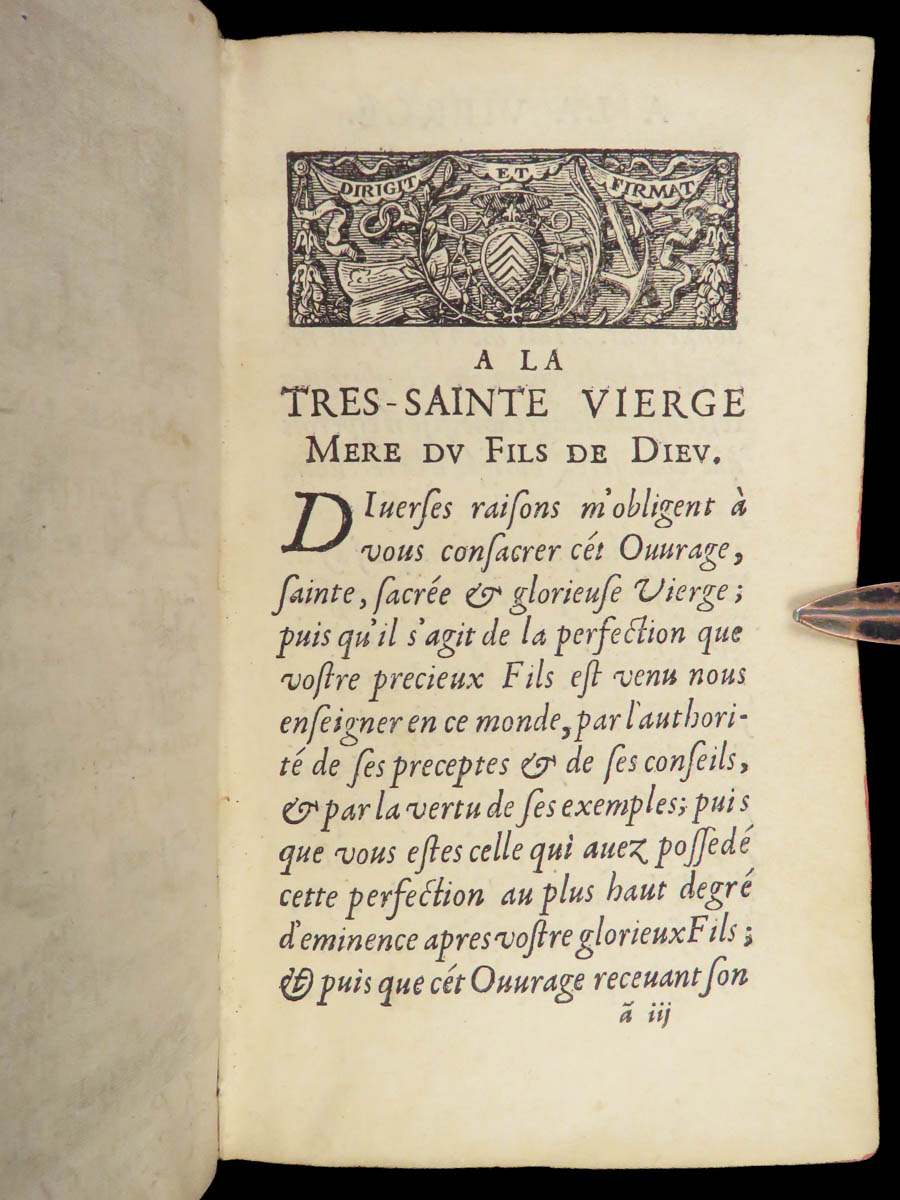 DIRIGIT ET FIRMAT
A LA
TRES-SAINTE VIERGE
MERE DV FILS DE DIEV.
DIuerſes raiſons m'obligent à
vous conſacrer cét Ouurage,
ſainte, ſacrée & glorieuſe Vierge;
puis qu'il s'agit de la perfection que
voſtre precieux Fils eſt venu nous
enſeigner en ce monde, par l'authori-
té de ſes preceptes & de ſes conſeils,
& par la vertu de ſes exemples; puis
que vous eſtes celle qui auez poſſedé
cette perfection au plus haut degré
d'eminence apres voſtre glorieux Fils;
& puis que cét Ouurage receuant ſon
ã iij